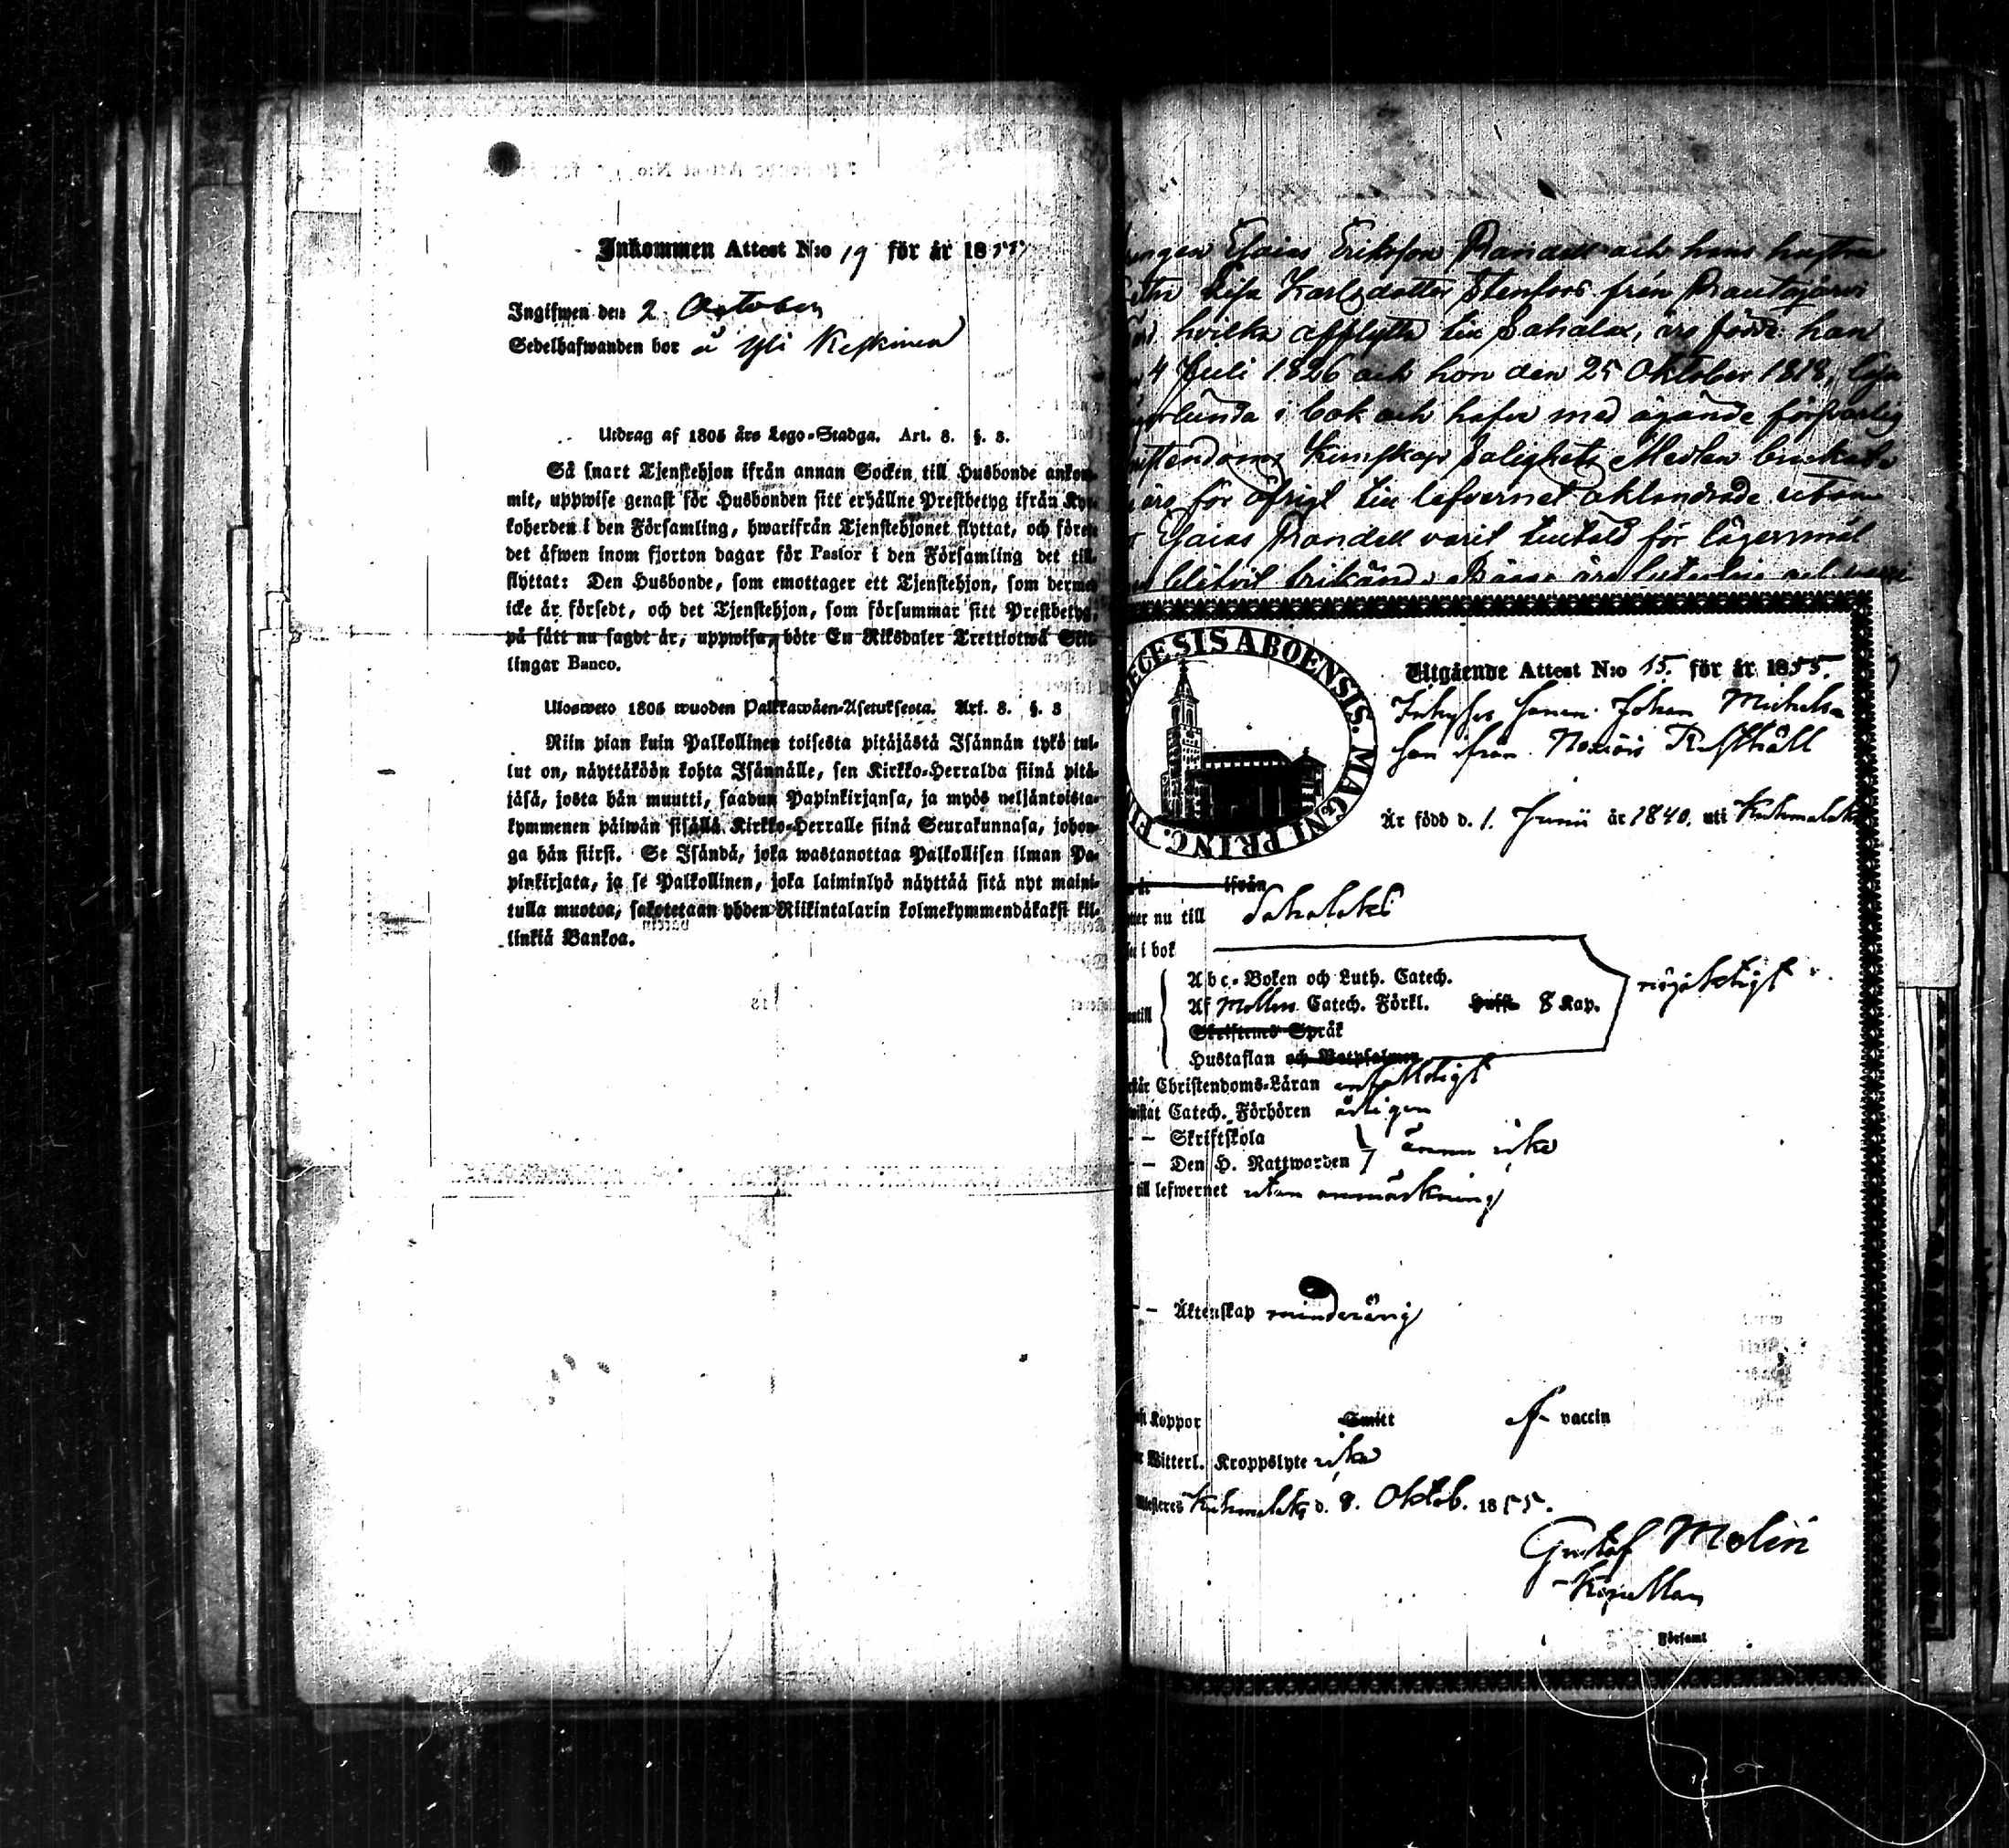 Inkommen Attest N:o 19 för år 1855
Ingifwen den 2 October
Sedelhafwanden bor å Yli Keskinen
Utdrag af 1805 års Lego-Stadga. Art. 8. §. 3.
Så snart Tjenstehjon ifrån annan Socken till Husbonde ankom-
mit, uppwise genast för Husbonden sitt erhållne Prestbetyg ifrån Kyr-
koherden i den Församling, hwarifrån Tjenstehjonet flyttat, och förete
det äfwen inom fjorton dagar för Pastor i den Församling det till-
flyttat: Den Husbonde, som emottager ett Tjenstehjon, som dermed
icke är försedt, och det Tjenstehjon, som försummar sitt Prestbetyg,
på sätt nu sagdt är, uppwisa, böte En Riksdaler Trettiotwå Skil-
lingar Banco.
Ulosweto 1805 wuoden Palkkawäen-Asetuksesta. Art. 8. §. 3
Niin pian kuin Palkollinen toisesta pitäjästä Isännän tykö tul-
lut on, näyttäköön kohta Isännälle, sen Kirkko-Herralda siinä pitä-
jäsä, josta hän muutti, saadun Papinkirjansa, ja myös neljäntoista-
kymmenen päiwän sisällä Kirkko-Herralle siinä Seurakunnasa, johon-
ga hän siirsi. Se Isändä, joka wastanottaa Palkollisen ilman Pa-
pinkirjata, ja se Palkollinen, joka laiminlyö näyttää sitä nyt maini-
tulla muotoa, sakotetaan yhden Riikintalarin kolmekymmendäkaksi kil-
linkiä Bankoa.
Esaias Erikson Randell och hans hustru
Lisa Karlsdotter Stenfors från Prautsjärvi
hvilka afflytta till Sahalax, äro födde: han
4 Juli 1826 och hon den 25 Oktober 1818, läsa
i bok och hafva med ägande försvarlig
Kunskap Salighets Medlen brukade
äro för öfrigt till lefvernet oklandrade utom
Esaias Randell varit tilltald för lägersmål
blifvit frikänd.
DIECESIS ABOENSIS. MAGNI PRINC.
Utgående Attest N:o 15. för år 1855.
Inhyses sonen Johan Michels
son från Rusthåll
Är född d. 1. Junii år 1840. uti Kuhmalaks
ifrån
nu till Sahalaks
i bok
Abc-Boken och Luth. Catech.
Af Catech. Förkl. 8 Kap. nöjaktigt
Skriftenes Språk
Hustaflan och Botpsalmer
Christendoms-Läran enfaldigt
Catech. Förhören årligen
— — Skriftskola
— — Den H. Nattwarden ännu icke
till lefwernet utan anmärkning
— — Äktenskap minderårig
Koppor Smitt af vaccin
Witterl. Kroppslyte icke
Kuhmalaks d. 8. Oktob. 1855.
Gustaf Molin
Kapellan
Församl